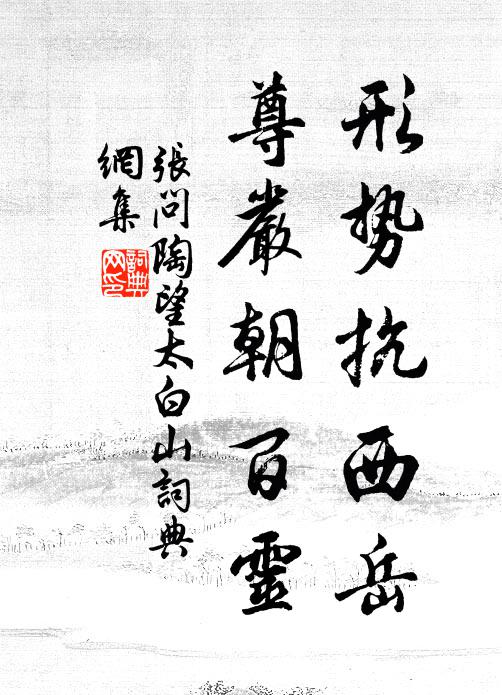 形势抗西岳
尊嚴朝百靈
張问陶望太白山詞典
網集
詞典
网印